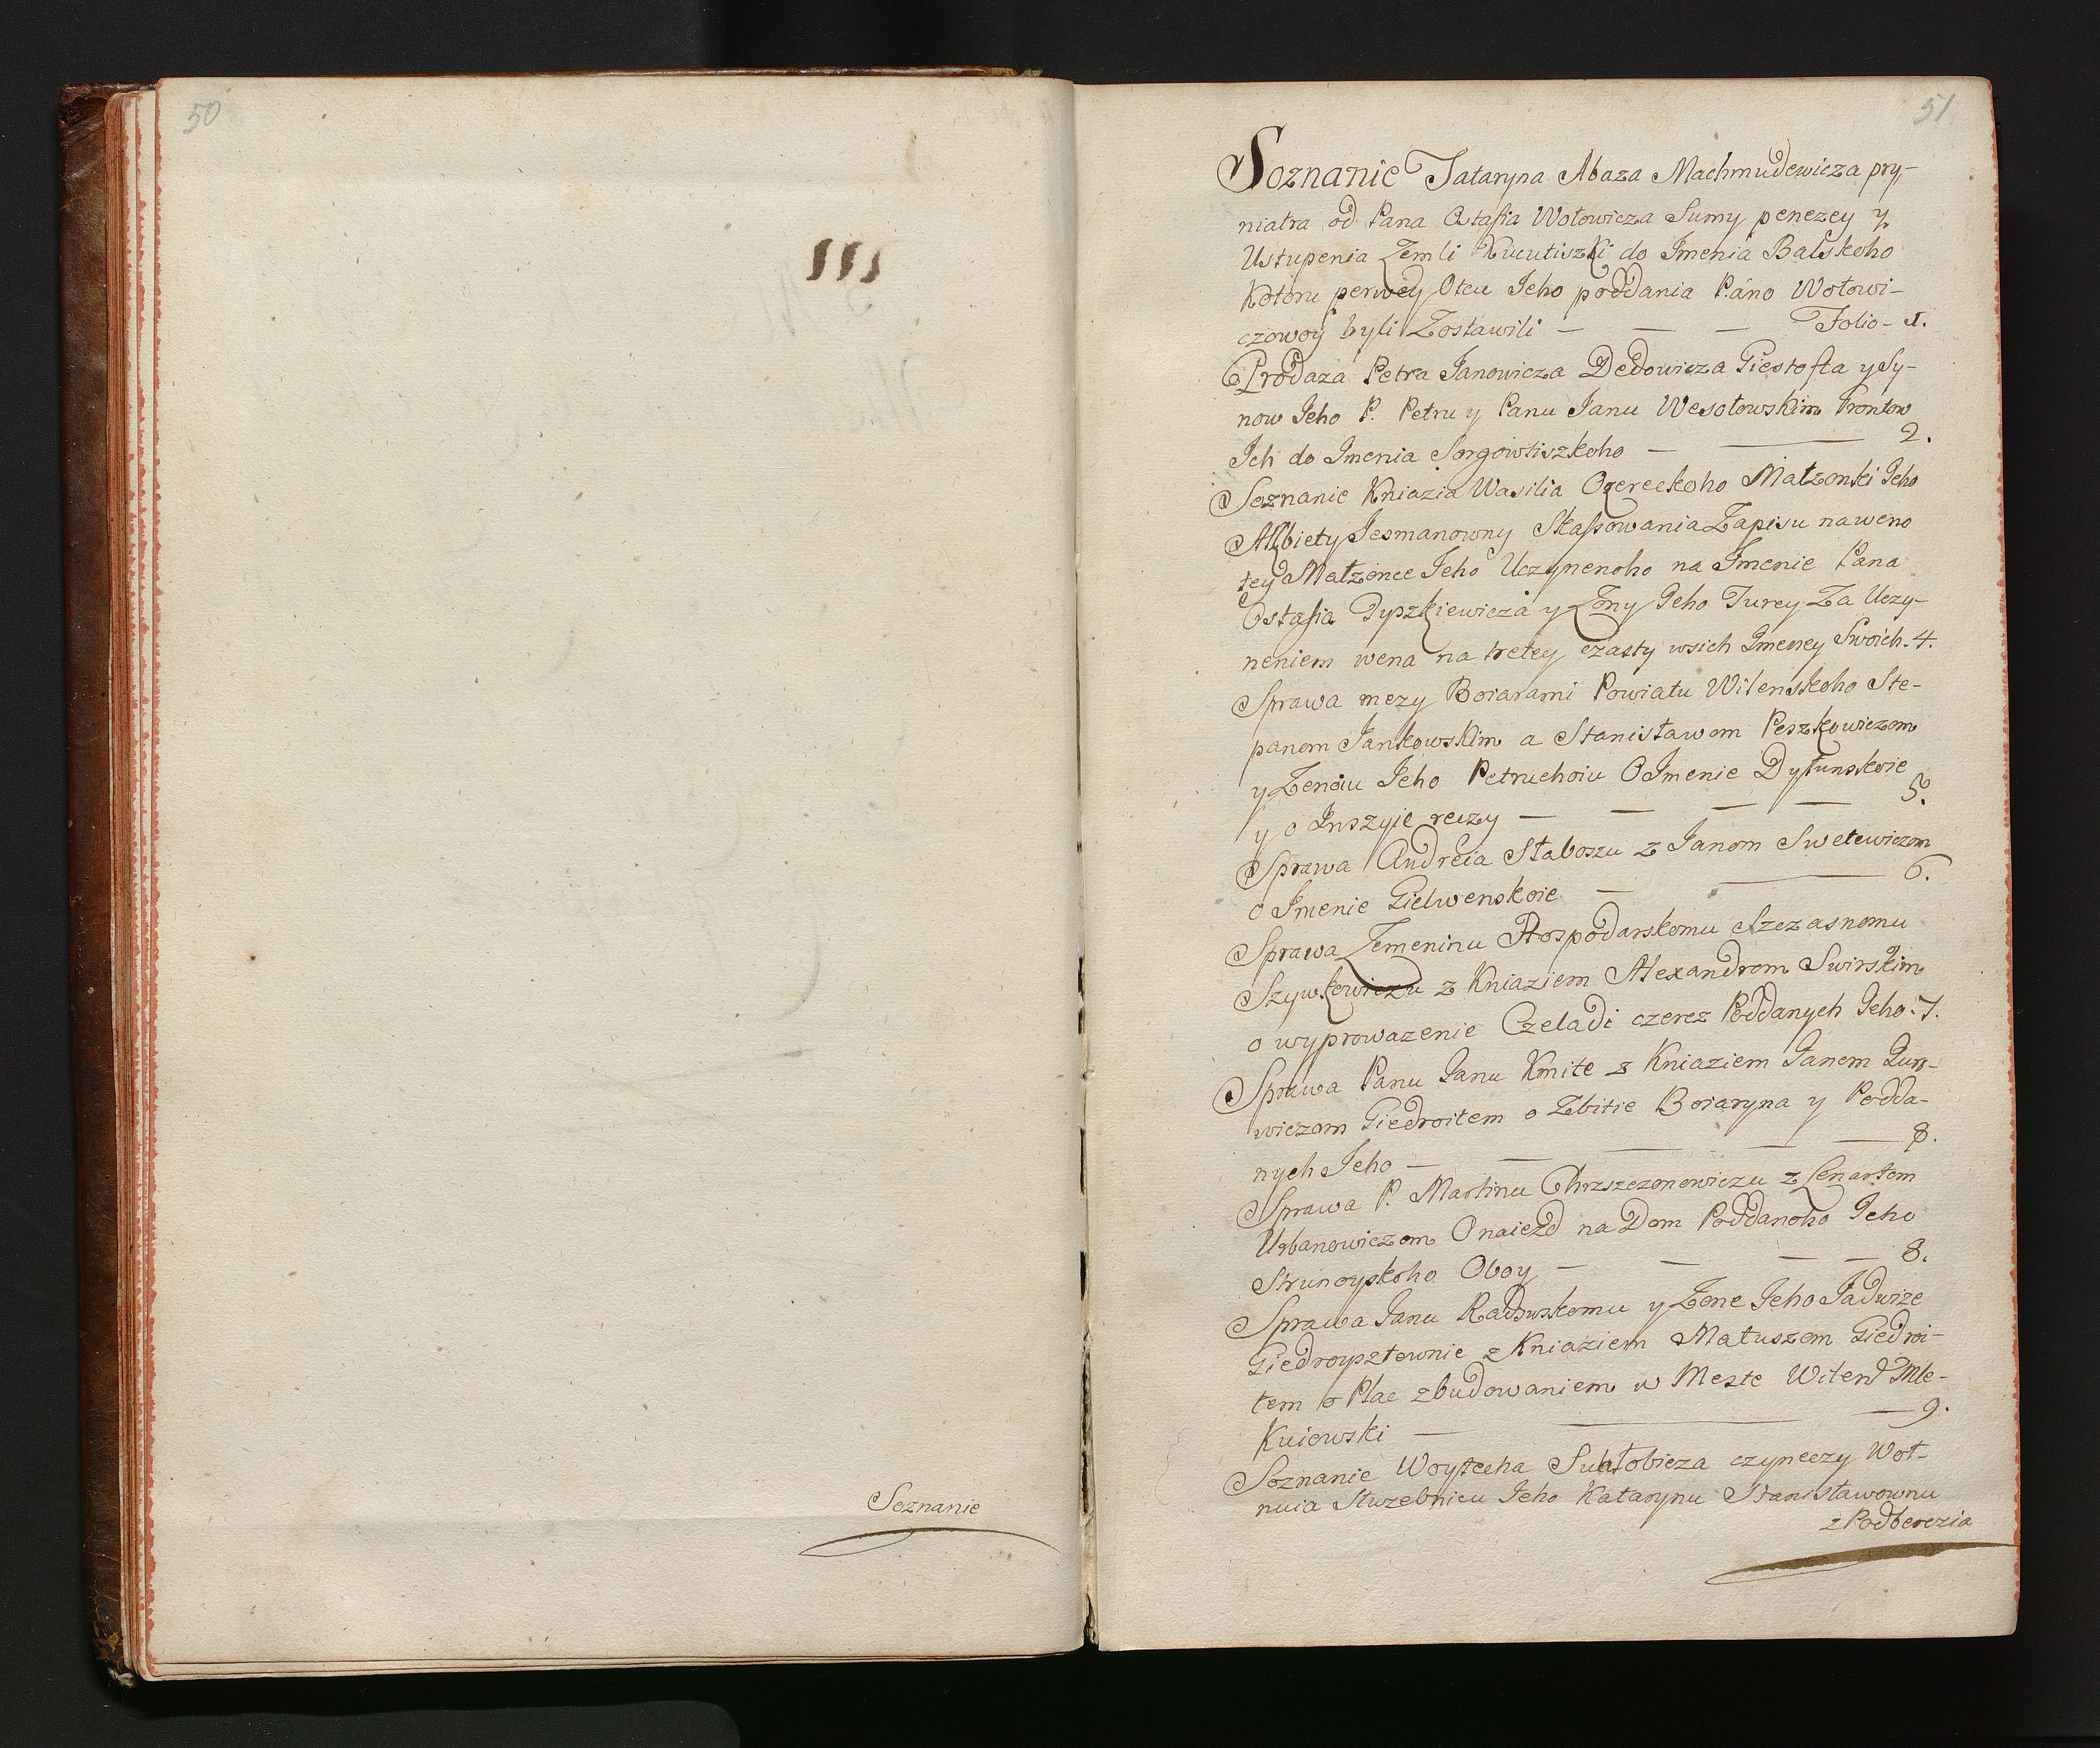 50
Soznanie
51
Soznanie Tataryna Abaza Machmudewicza pry-
niatra od Pana Ostafia Wołowicza Sumy penezey y
Ustupenia Zemli Kucutiszki do Imenia Balskoho
Kotoru perwey Otcu Jeho poddania Pano Wołowi-
czowoy byli Zostawili — — — Folio - 1.
Prodaza Petra Janowicza Dedowicza Giestofta y Sy-
now Jeho P. Petru y Panu Janu Wesołowskim Gruntow
Ich do Imenia Sorgowtiszkoho — — 2.
Soznanie Kniazia Wasilia Ozereckoho Małzonki Jeho
Alzbiety Jesmanowny Skassowania Zapisu na weno
tey Małzonce Jeho Uczynenoho na Imenie Pana
Ostafia Tyszkiewicza y Zony Jeho Turey Za Uczy-
neniem wena na tretey czasty wsich Imeney Swoich. 4.
Sprawa mezy Boiarami Powiatu Wilenskoho Ste-
panom Jankowskim a Stanisławom Peszkowiczom
y Zenoiu Jeho Petruchoiu O Imenie Dyłunskoie
y o Inszyie reczy — — — — 5.
Sprawa Andreia Słaboszu z Janom Swetewiczom
o Imenie Gielwenskoie — — 6.
Sprawa Zemeninu Hospodarskomu Szczasnomu
Szywkowiczu z Kniaziem Alexandrom Swirskim
o wyprowazenie Czeladi czerez Poddanych Jeho. 7.
Sprawa Panu Janu Kmite z Kniaziem Janem Jur-
wiczom Giedroitem o Zbitie Boiaryna y Podda-
nych Jeho — — — — — 8.
Sprawa P. Martinu Chrszczonowiczu z Lenartom
Urbanowiczom O naiezd na Dom Poddanoho Jeho
Strunoyskoho Oboy — — — — 8.
Sprawa Janu Radowskomu y Zene Jeho Jadwize
Giedroysztownie z Kniaziem Matuszem Giedroi-
tem o Plac zbudowaniem w Meste Wilen Mle-
Kuiowski — — — 9.
Soznanie Woytecha Sułtobicza czyneczy Wol-
nuia Słuzebnicu Jeho Katarynu Stanisławownu
z Podberezia